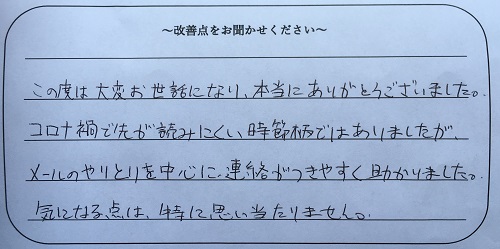 ～改善点をお聞かせください～
この度は大変お世話になり、本当にありがとうございました。
コロナ禍で先が読みにくい時節柄ではありましたが、
メールのやりとりを中心に、連絡がつきやすく助かりました。
気になる点は、特に思い当たりません。